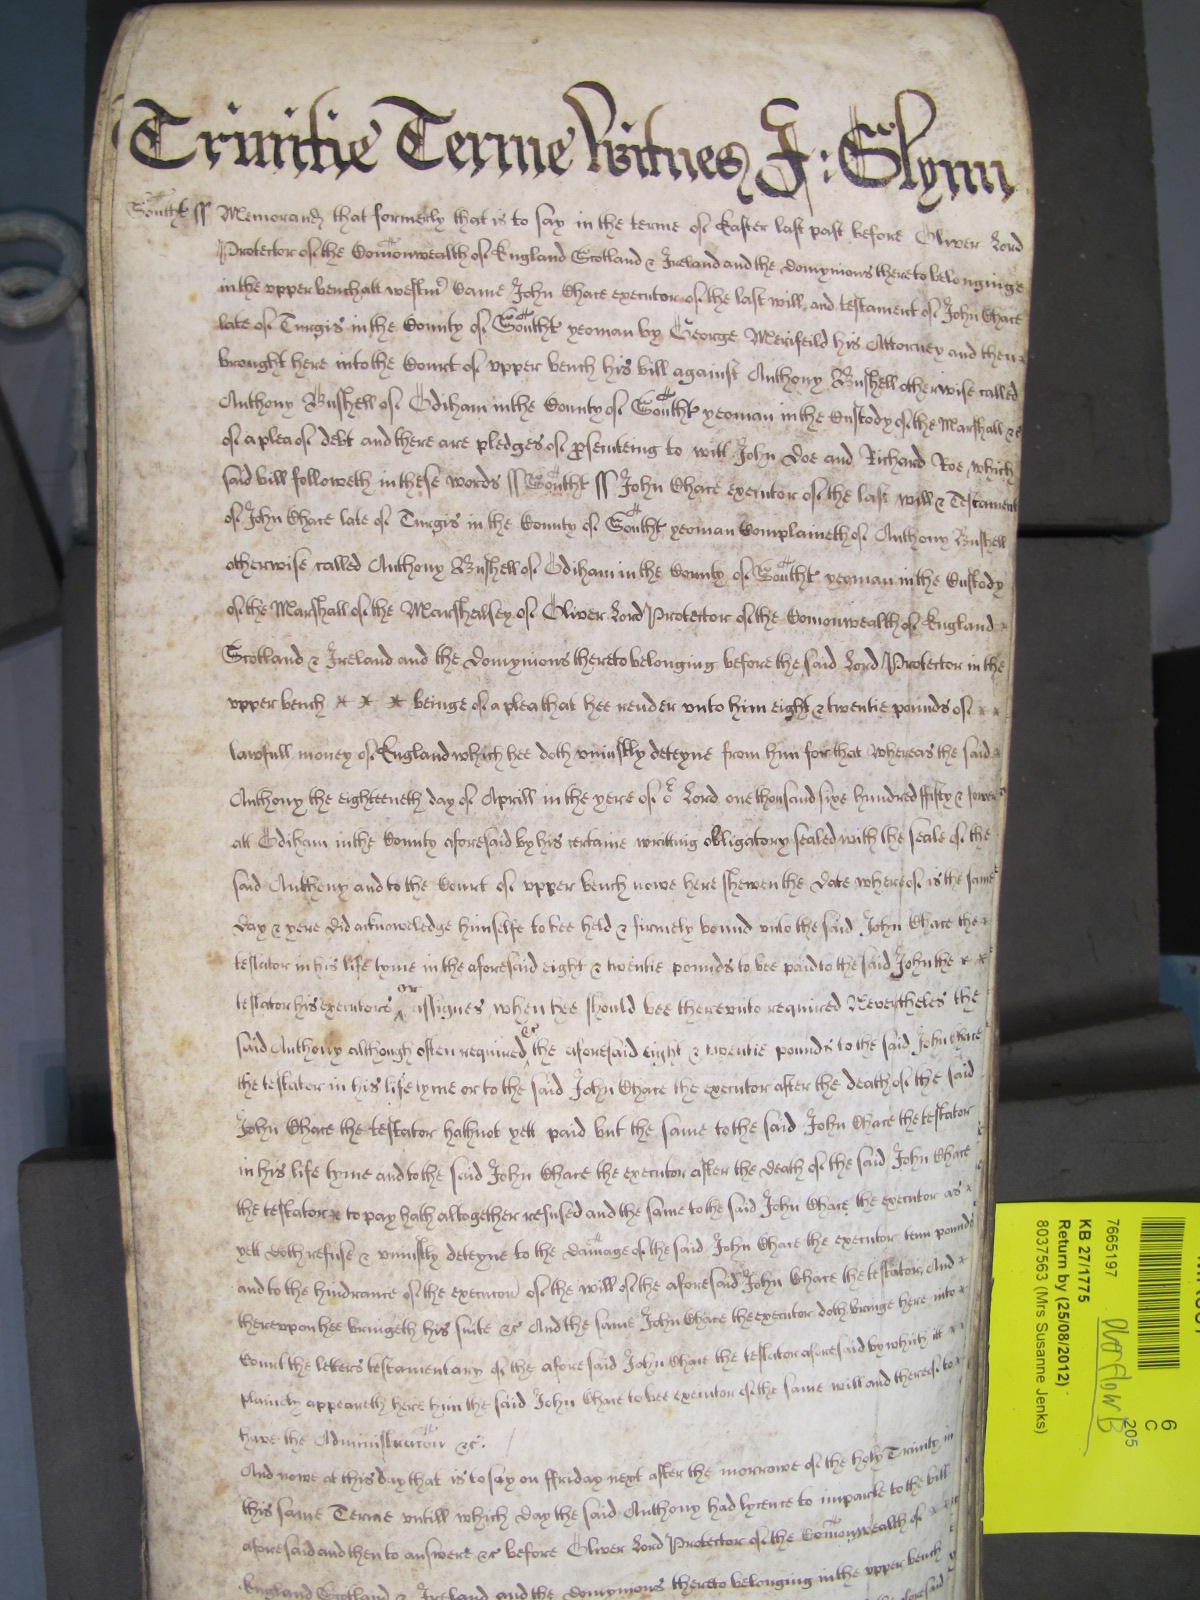 Trinitie Terme Witnes J: Glynn
Southt ss Memorand that formerly that is to say in the terme of Easter last past before Oliver Lord
Protector of the Comonwealth of England Scotland & Ireland and the Domynions thereto belonginge
in the upper bench att westm Came John Chace executor of the last will and testament of John Chace
late of Turgis in the County of Southt yeoman by George Merifeild his Attorney and then
brought here into the Court of upper bench his bill against Anthony Bushell otherwise called
Anthony Bushell of Odiham in the County of Southt yeoman in the Custody of the Marshall &c
of a plea of debt and there are pledges of prosecuteing to witt John Doe and Richard Roe which
said bill followeth in these words ss Southt ss John Chace executor of the last will & Testament
of John Chace late of Turgis in the County of Southt yeoman Complaineth of Anthony Bushell
otherwise called Anthony Bushell of Odiham in the County of Southt yeoman in the Custody
of the Marshall of the Marshalsey of Oliver Lord Protector of the Comonwealth of England
Scotland & Ireland and the Domynions thereto belonging before the said Lord Protector in the
upper bench x x x beinge of a plea that hee render unto him eight & twentie pounds of x x
lawfull money of England which hee doth uniustly deteyne from him for that whereas the said
Anthony the eighteeneth day of Aprill in the yere of or Lord one thousand six hundred ffifty & fower
att Odiham in the County aforesaid by his certaine writting obligatory sealed with the seale of the
said Anthony and to the Court of upper bench nowe here shewen the Date whereof is the same
day & yere did acknowledge himselfe to bee held & firmely bound unto the said John Chace the
testator in his life tyme in the aforesaid eight & twentie pounds to bee paid to the said John the x x
testator his executors or assignes when hee should bee thereunto required Nevertheles the
said Anthony although often required &c the aforesaid eight & twentie pounds to the said John Chace
the testator in his life tyme or to the said John Chace the executor after the death of the said
John Chace the testator hath not yett paid but the same to the said John Chace the testator
in his life tyme and to the said John Chace the executor after the death of the said John Chace
the testator x to pay hath altogether refused and the same to the said John Chace the executor as x
yett doth refuse & uniustly deteyne to the damage of the said John Chace the executor tenn pounds
and to the hindrance of the execucon of the will of the aforesaid John Chace the testator And x
thereupon hee bringeth his suite &c And the same John Chace the executor doth bringe here into
Court the letters testamentary of the aforesaid John Chace the testator aforesaid by which itt x x
plainely appeareth here him the said John Chace to bee executor of the same will and thereof to
have the Administracon &c.
And nowe at this day that is to say on ffriday next after the morrowe of the holy Trinity in
this same Terme untill which day the said Anthony had lycence to imparle to the bill
aforesaid and then to answere &c before Oliver Lord Protector of the Comonwealth of
England Scotland & Ireland and the Domynions thereto belonging in the upper bench
7665197
KB 27/1775
Return by (25/08/2012)
8037563 (Mrs Susanne Jenks)
6
C
205